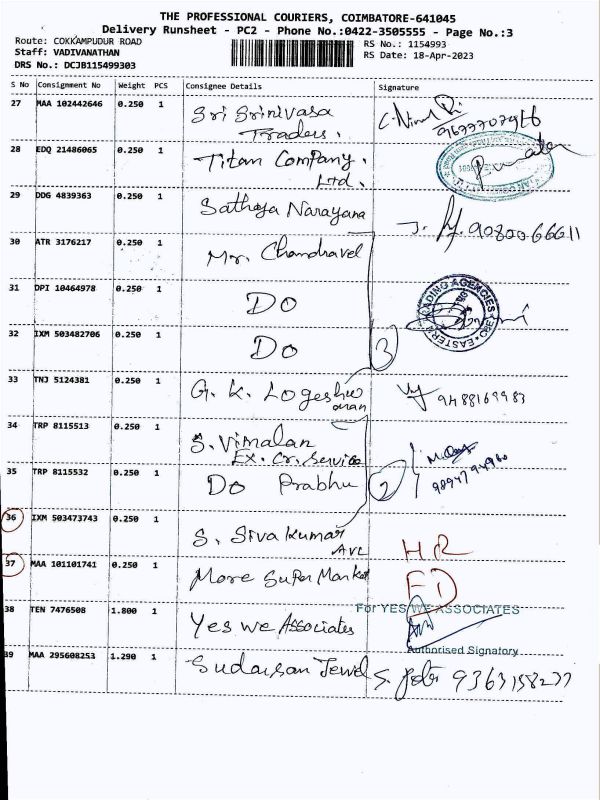 THE PROFESSIONAL COURIERS, COIMBATORE-641045
Delivery Runsheet - PC2 - Phone No.:0422-3505555 - Page No.:3
Route: COKKAMPUDUR ROAD RS No.: 1154993
Staff: VADIVANATHAN RS Date: 18-Apr-2023
DRS No.: DCJB115499303
S No Consignment No Weight PCS Consignee Details Signature
27 MAA 102442646 0.250 1 Sri Srinivasa
Traders.
28 EDQ 21486065 0.250 1 Titan Company.
Ltd.
29 DDG 4839363 0.250 1 Sathya Narayana
9080066611
30 ATR 3176217 0.250 1 Mr. Chandravel
31 DPI 10464978 0.250 1 DO
EASTERN TRADING AGENCIES CBE
32 IXM 503482706 0.250 1 DO
3
33 TNJ 5124381 0.250 1 G. K. Logeshw
aran
9488169983
34 TRP 8115513 0.250 1 S. Vimalan
Ex. Cr. Service
35 TRP 8115532 0.250 1 Do Prabhu 2
36 IXM 503473743 0.250 1 S. Siva Kumar
AVL
HR
37 MAA 101101741 0.250 1 More Super Market
FD
38 TEN 7476508 1.800 1 Yes We Associates
For YES WE ASSOCIATES
Authorised Signatory
39 MAA 295608253 1.290 1 Sudarsan Jewel